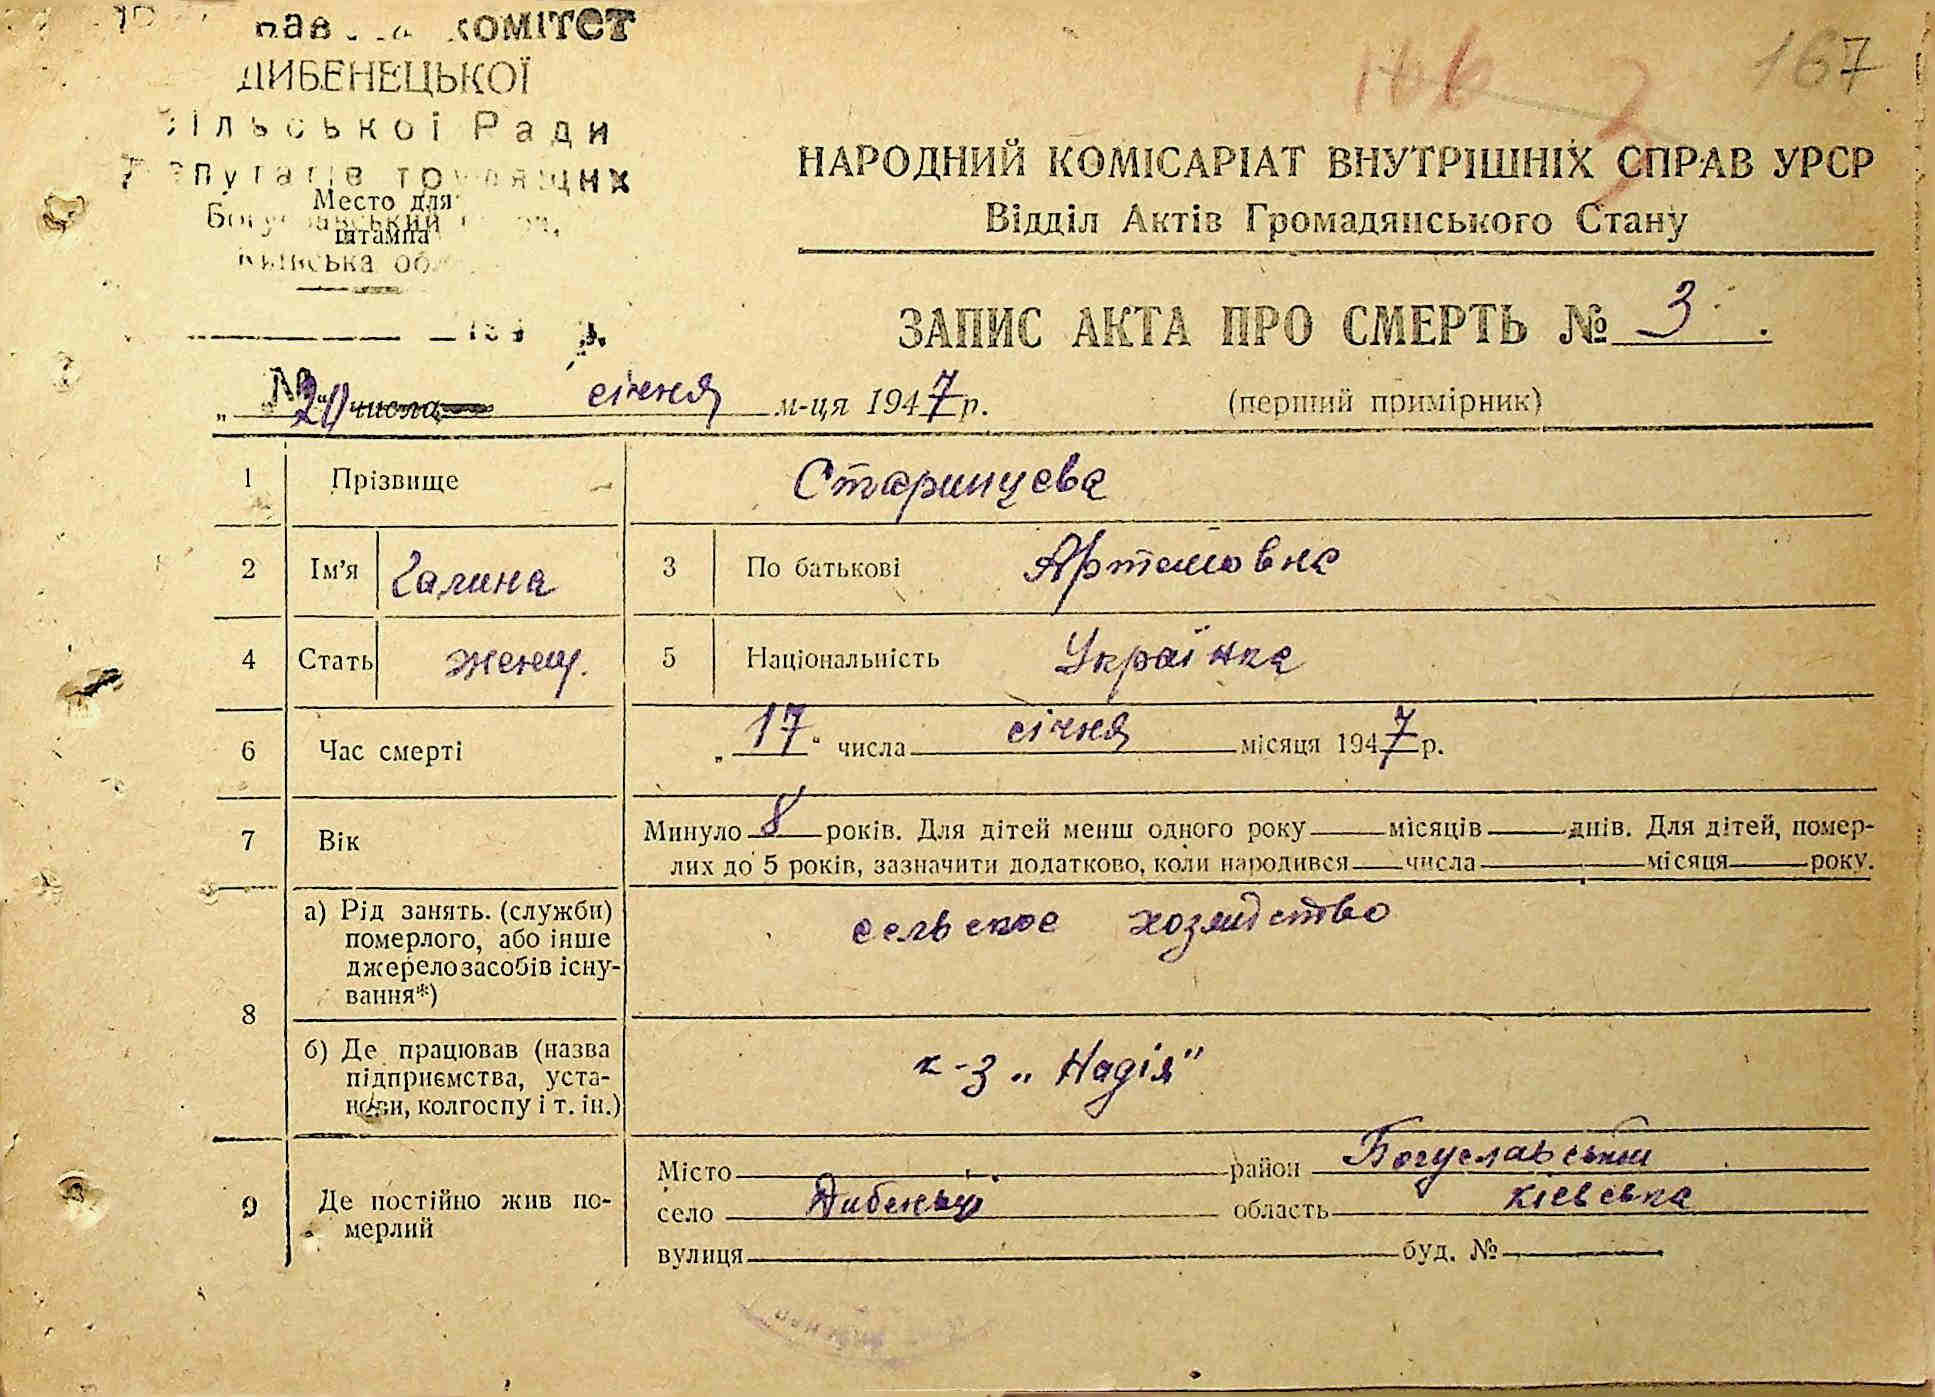 комітет
ДИБЕНЕЦЬКОЇ
Сільської Ради
Депутатів трудящих
Место для
штампа
Богуславський
Київська обл.
166
167
НАРОДНИЙ КОМІСАРІАТ ВНУТРІШНІХ СПРАВ УРСР
Відділ Актів Громадянського Стану
ЗАПИС АКТА ПРО СМЕРТЬ № 3.
№
„ 20 " числа січня м-ця 1947 р. (перший примірник)
1 Прізвище Старинцева
2 Ім'я Галина 3 По батькові Артемовна
4 Стать женщ. 5 Національність Українка
6 Час смерті „ 17 " числа січня місяця 1947 р.
7 Вік Минуло 8 років. Для дітей менш одного року місяців днів. Для дітей, помер-
лих до 5 років, зазначити додатково, коли народився числа місяця року.
8 а) Рід занять. (служби)
померлого, або інше
джерело засобів існу-
вання*)
сельское хозяйство
б) Де працював (назва
підприємства, уста-
нови, колгоспу і т. ін.)
к-з „Надія"
9 Де постійно жив по-
мерлий
Місто район Богуславський
село Дибенці область кієвська
вулиця буд. №